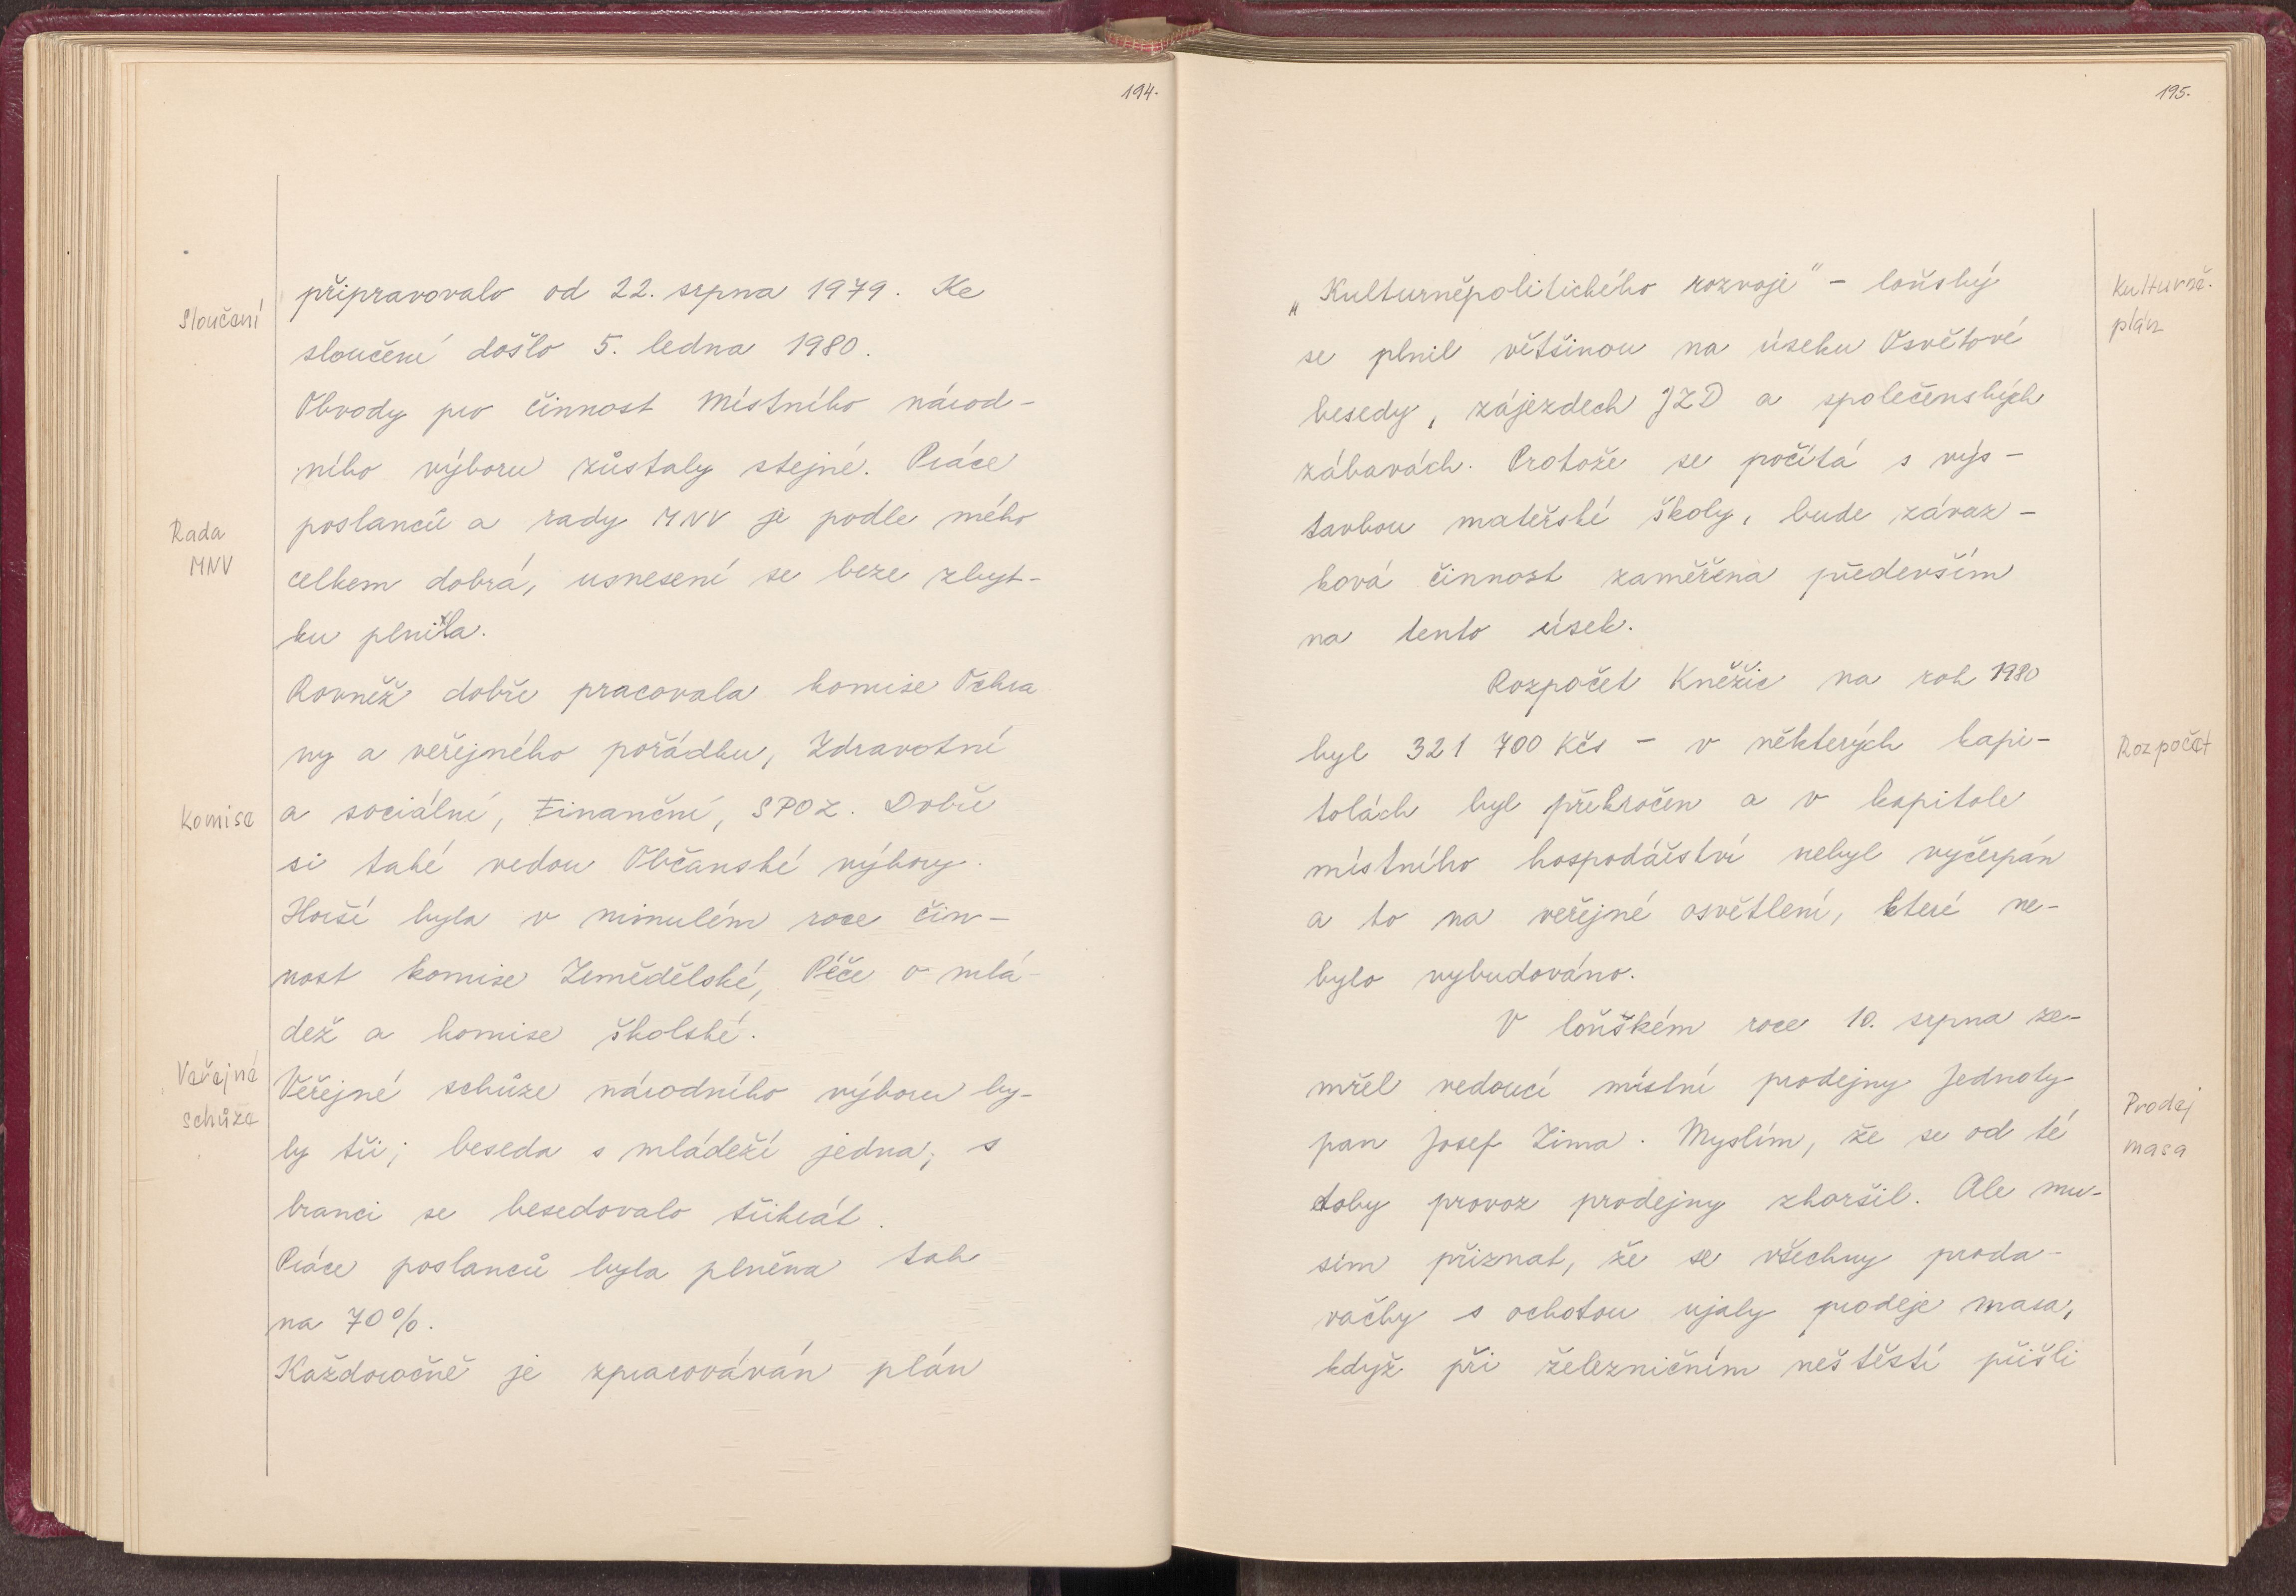 194.
Sloučení
připravovalo od 22. srpna 1979. Ke
sloučení došlo 5. ledna 1980.
Obvody pro činnost Místního národ-
ního výboru zůstaly stejné. Práce
Rada
MNV
poslanců a rady MNV je podle mého
celkem dobrá, usnesení se beze zbyt-
ku plnila.
Rovněž dobře pracovala komise Ochra
ny a veřejného pořádku, Zdravotní
Komise
a sociální, Finanční, SPOZ. Dobře
si také vedou Občanské výbory.
Horší byla v minulém roce čin-
nost komise Zemědělské, Péče o mlá-
dež a komise školské.
Veřejné
schůze
Veřejné schůze národního výboru by-
ly tři; beseda s mládeží jedna; s
branci se besedovalo třikrát.
Práce poslanců byla plněna tak
na 70%.
Každoročně je zpracováván plán
195.
„Kulturněpolitického rozvoje" – loňský
Kulturně.
plán
se plnil většinou na úseku Osvětové
besedy, zájezdech JZD a společenských
zábavách. Protože se počítá s výs-
tavbou mateřské školy, bude závaz-
ková činnost zaměřena především
na tento úsek.
Rozpočet Kněžic na rok 1980
byl 321 700 Kčs – v některých kapi-
Rozpočet
tolách byl překročen a v kapitole
místního hospodářství nebyl vyčerpán
a to na veřejné osvětlení, které ne-
bylo vybudováno.
V loňském roce 10. srpna ze-
mřel vedoucí místní prodejny Jednoty
Prodej
masa
pan Josef Zima. Myslím, že se od té
doby provoz prodejny zhoršil. Ale mu-
sím přiznat, že se všechny proda-
vačky s ochotou ujaly prodeje masa,
když při železničním neštěstí přišli